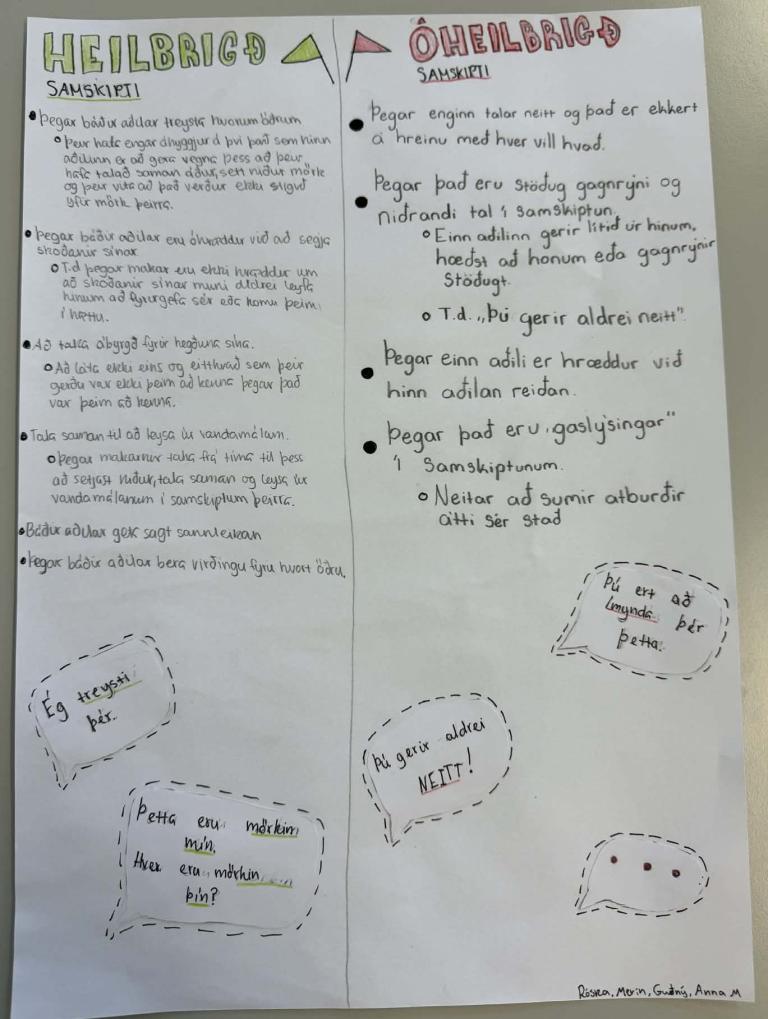 HEILBRIGÐ
SAMSKIPTI
• Þegar báðir aðilar treysta hvorum öðrum
o Þeir hafa engar áhyggjur á því það sem hinn
aðilinn er að gera vegna þess að þeir
hafa talað saman áður, sett niður mörk
og þeir vita að það verður ekki stigið
yfir mörk þeirra.
• Þegar báðir aðilar eru óhræddir við að segja
skoðanir sínar
o T.d þegar makar eru ekki hræddir um
að skoðanir sínar muni aldrei leyfa
hinum að fyrirgefa sér eða komu þeim
í hættu.
• Að taka ábyrgð fyrir hegðun sína.
o Að láta ekki eins og eitthvað sem þeir
gerðu var ekki þeim að kenna þegar það
var þeim að kenna.
• Tala saman til að leysa úr vandamálum.
o Þegar makarnir taka frá tíma til þess
að setjast niður, tala saman og leysa úr
vandamálunum í samskiptum þeirra.
• Báðir aðilar geta sagt sannleikan
• Þegar báðir aðilar bera virðingu fyrir hvort öðru.
Ég treysti
þér.
Þetta eru mörkin
mín.
Hver eru mörkin
þín?
ÓHEILBRIGÐ
SAMSKIPTI
• Þegar enginn talar neitt og það er ekkert
á hreinu með hver vill hvað.
• Þegar það eru stöðug gagnrýni og
niðrandi tal í samskiptun.
o Einn aðilinn gerir lítið úr hinum,
hæðst að honum eða gagnrýnir
stöðugt.
o T.d. „Þú gerir aldrei neitt“.
• Þegar einn aðili er hræddur við
hinn aðilan reiðan.
• Þegar það eru „gaslýsingar“
í samskiptunum.
o Neitar að sumir atburðir
átti sér stað
Þú ert að
ímynda þér
þetta.
Þú gerir aldrei
NEITT!
• • •
Merin, Guðný, Anna M